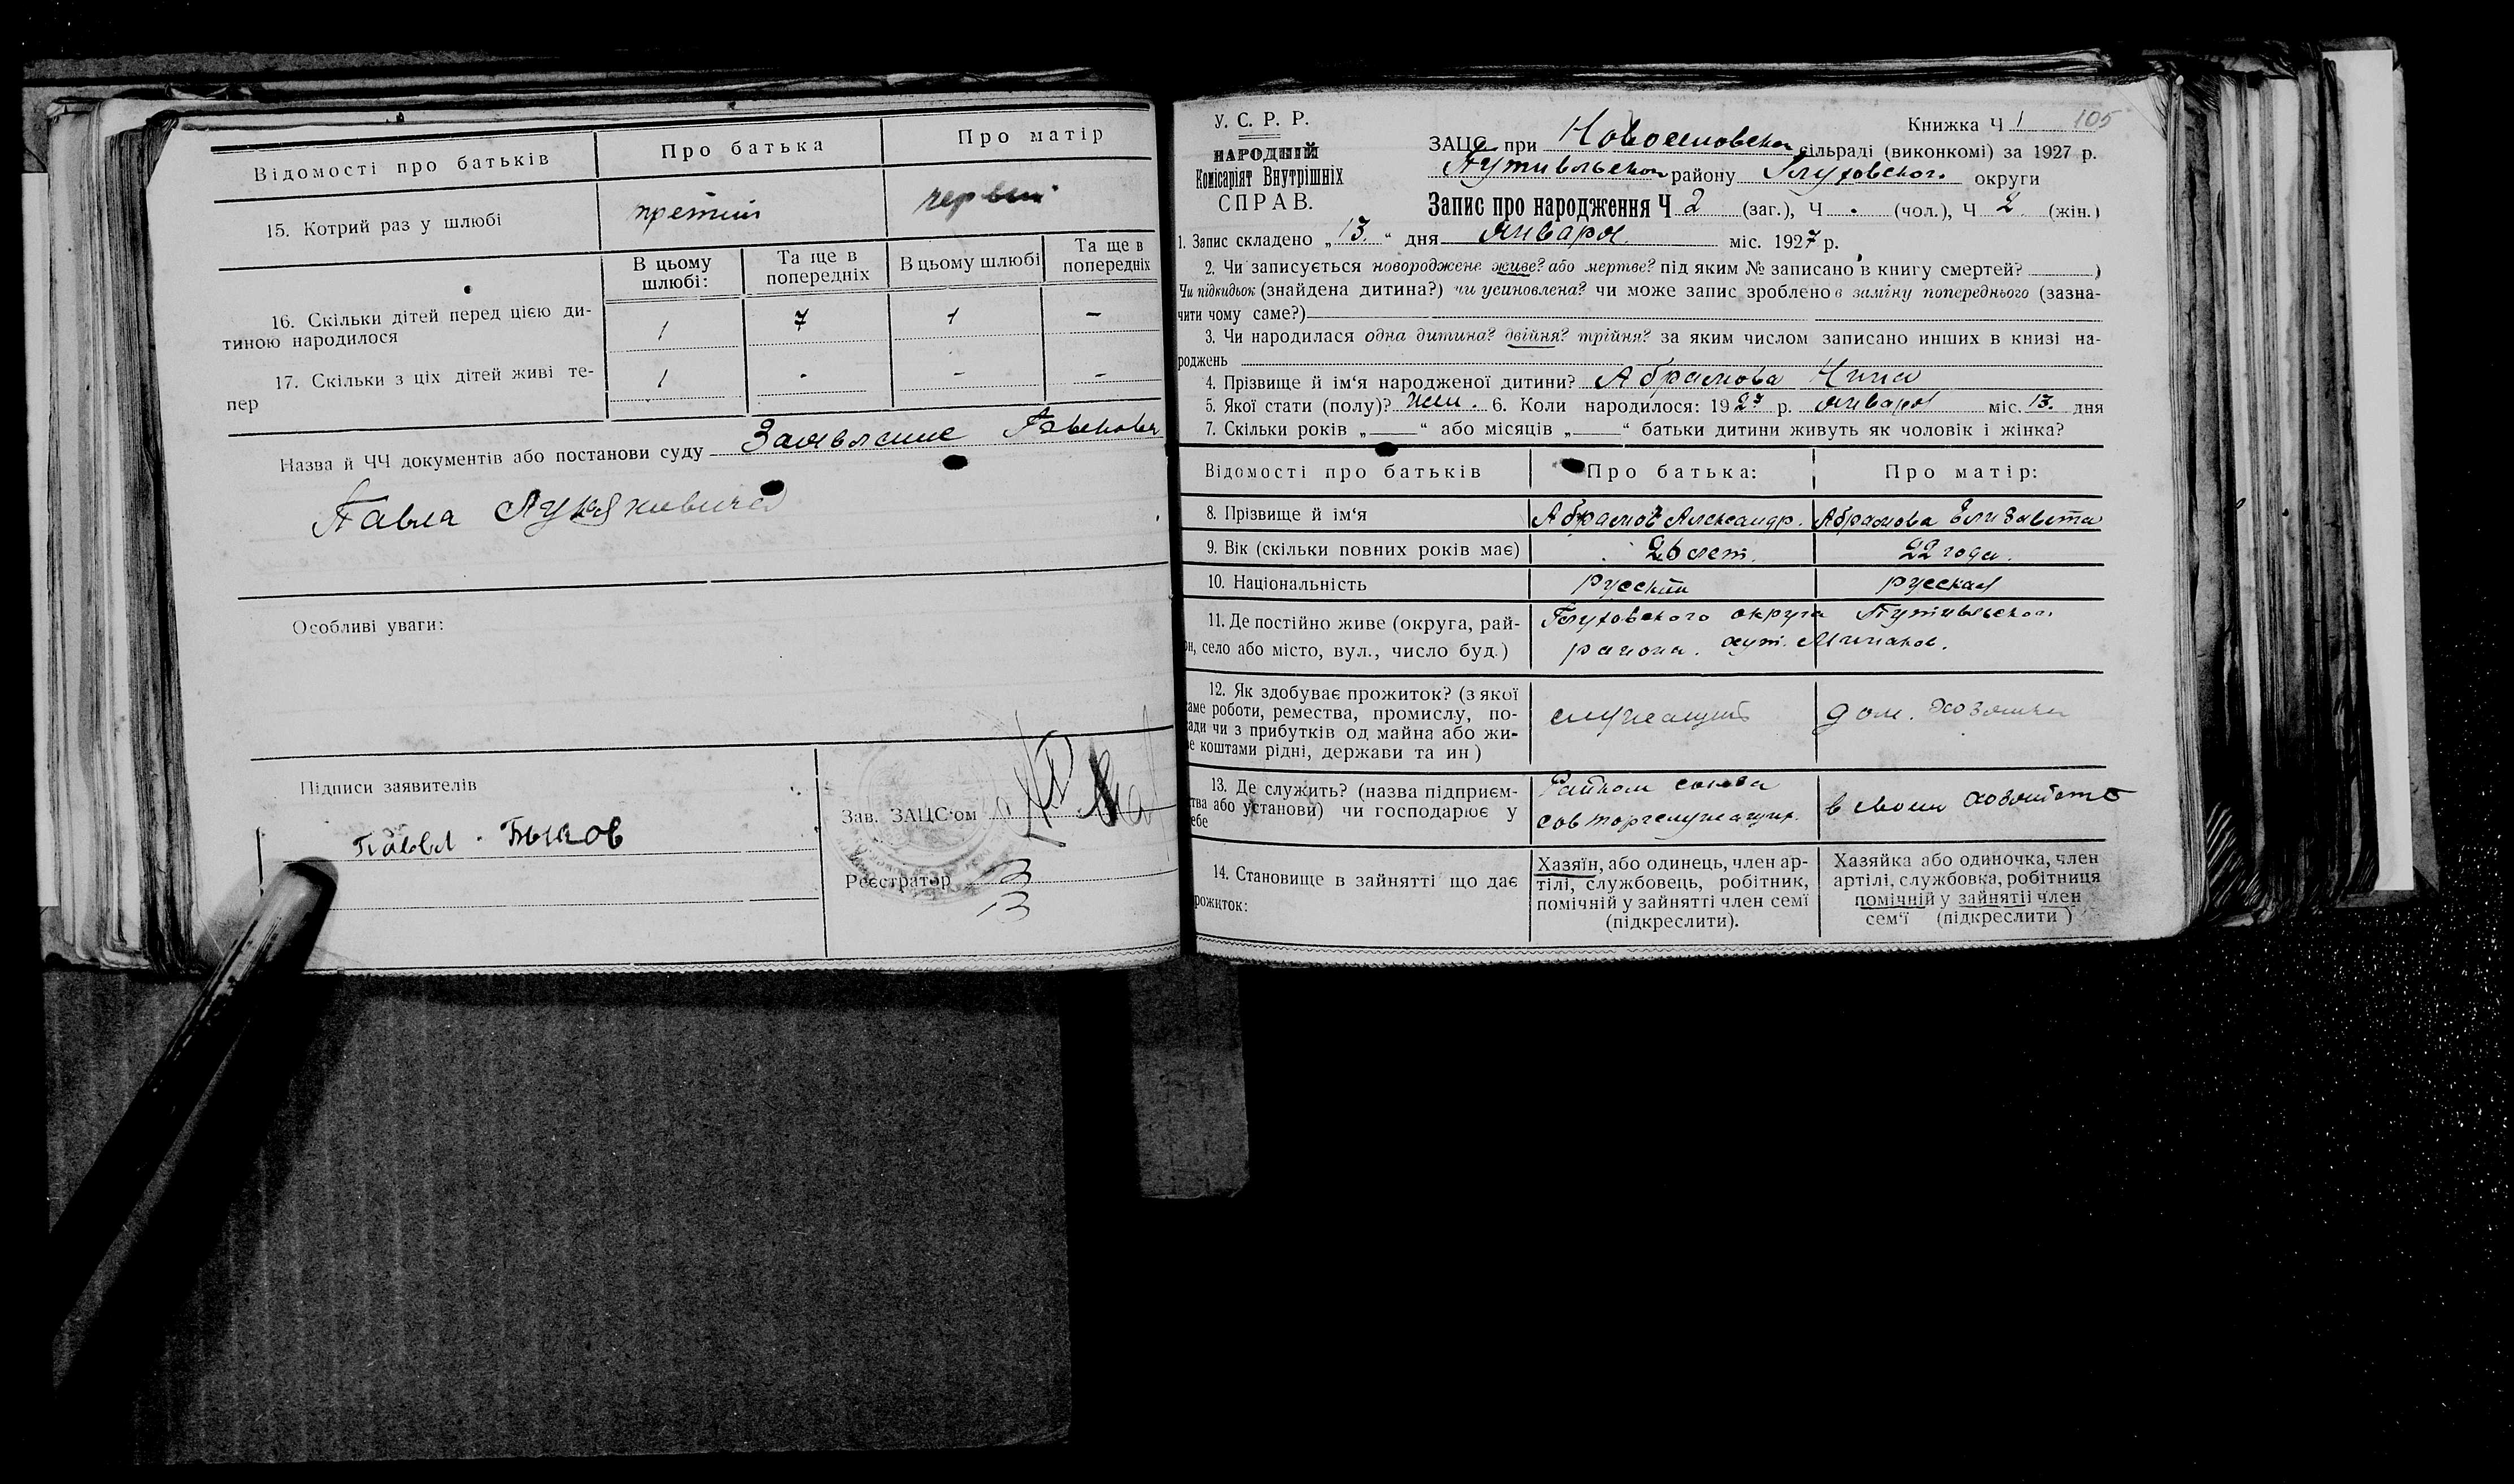 Відомості про батьків
Про батька
Про матір
15. Котрий раз у шлюбі
третий
первый
В цьому шлюбі:
Та ще в попередніх
В цьому шлюбі
Та ще в попередніх
16. Скільки дітей перед цією ди-
тиною народилося
1
7
1
—
17. Скільки з ціх дітей живі те-
пер
1
-
–
–
Назва й ЧЧ документів або постанови суду Заявление Быкова
Павла
Особливі уваги:
Підписи заявителів
Павел Быков
Зав. ЗАЦС'ом
Реєстратор
У. С. Р. Р.
НАРОДНІЙ
Комісаріят Внутрішніх
СПРАВ.
Книжка Ч 1 105
ЗАЦС при сільраді (виконкомі) за 1927 р.
Путивльского району Глуховского округи
Запис про народження Ч 2 (заг.), Ч . (чол.), Ч 2. (жін.)
1. Запис складено „13.“ дня января міс. 1927 р.
2. Чи записується новороджене живе? або мертве? під яким № записано в книгу смертей? )
Чи підкидьок (знайдена дитина?) чи усиновлена? чи може запис зроблено в заміну попереднього (зазна-
чити чому саме?)
3. Чи народилася одна дитина? двійня? трійня? за яким числом записано инших в книзі на-
роджень
4. Прізвище й ім‘я народженої дитини? Абрамова Нина
5. Якої стати (полу)? жен. 6. Коли народилося: 1927 р. января міс. 13. дня
7. Скільки років „——“ або місяців „——“ батьки дитини живуть як чоловік і жінка?
Відомості про батьків
Про батька:
Про матір:
8. Прізвище й ім‘я
Абрамов Александр.
Абрамова Елизавета
9. Вік (скільки повних років має)
26 лет.
22 года.
10. Національність
русский
русская
11. Де постійно живе (округа, рай-
он, село або місто, вул., число буд.)
Глуховского округа Путивльского
района. хут.
12. Як здобуває прожиток? (з якої
саме роботи, ремества, промислу, по-
сади чи з прибутків од майна або жи-
ве коштами рідні, держави та ин )
служащий
дом. хозяйка
13. Де служить? (назва підприєм-
ства або установи) чи господарює у
себе
Райком союза
совторгслужащих.
в своем хозяйстве
14. Становище в зайнятті що дає
прожиток:
Хазяїн, або одинець, член ар-
тілі, службовець, робітник,
помічній у зайнятті член семї
(підкреслити).
Хазяйка або одиночка, член
артілі, службовка, робітниця
помічній у зайнятії член
сем‘ї (підкреслити )